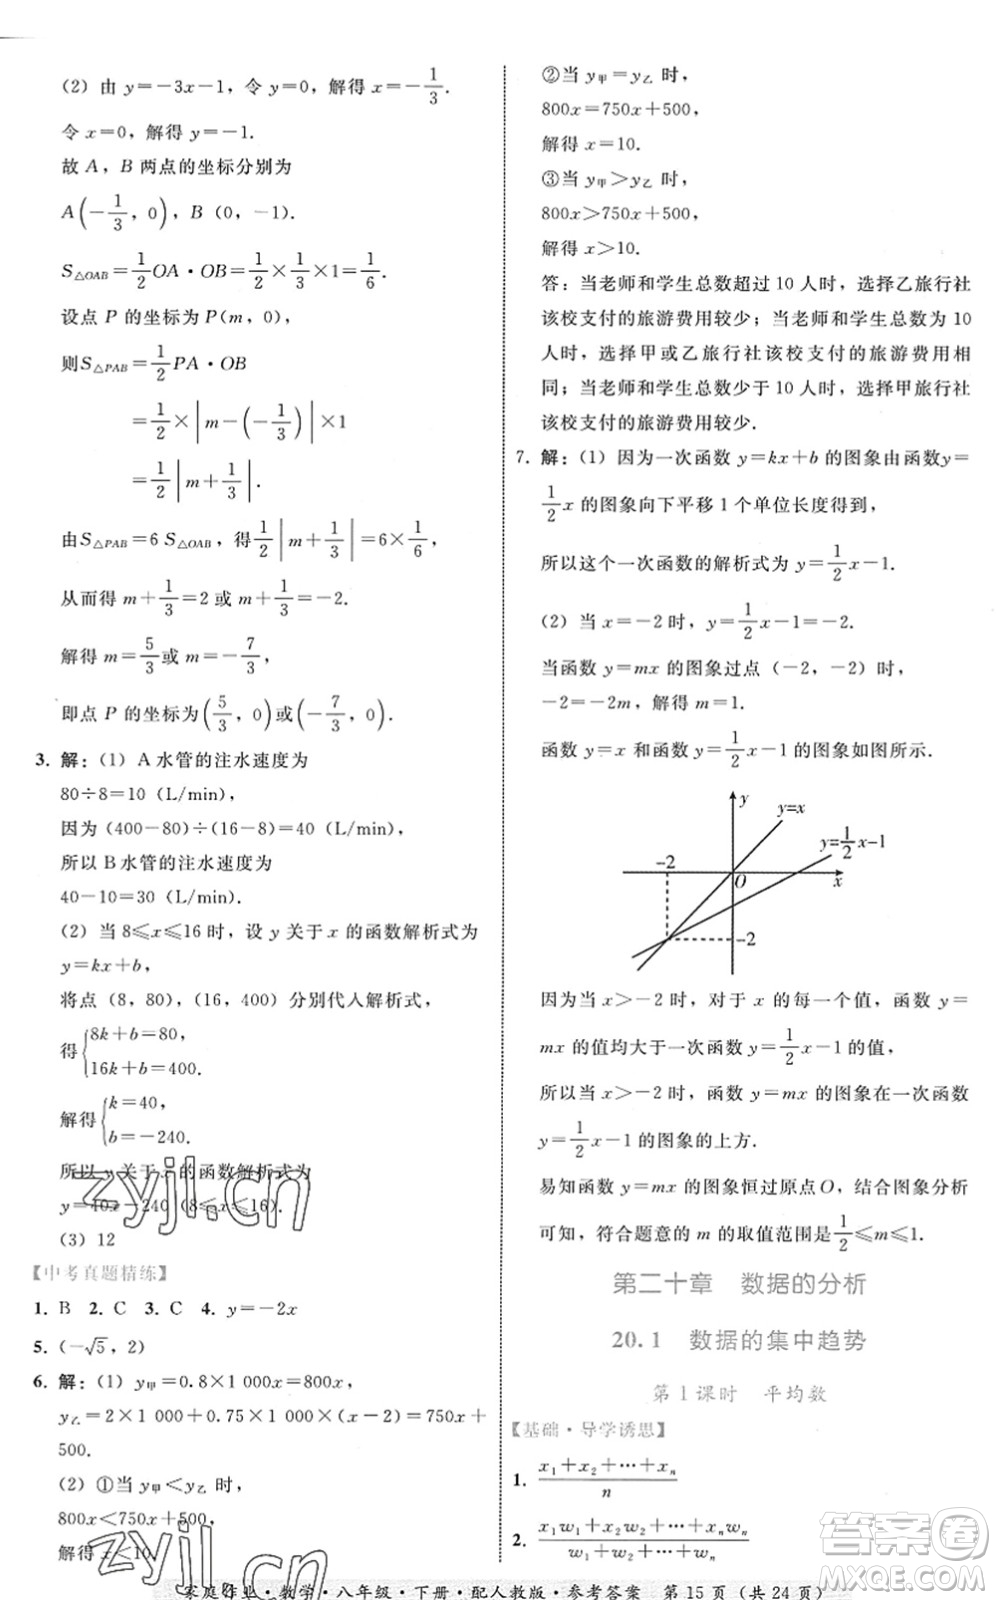 (2) 由 y=-3x-1，令 y=0，解得 x=-1/3.
令 x=0，解得 y=-1.
故 A，B 两点的坐标分别为
A(-1/3，0)，B (0，-1).
S△OAB=1/2OA·OB=1/2×1/3×1=1/6.
设点 P 的坐标为 P(m，0)，
则S△PAB=1/2PA·OB
=1/2×|m-(-1/3)|×1
=1/2|m+1/3|.
由S△PAB=6 S△OAB，得1/2|m+1/3|=6×1/6，
从而得 m+1/3=2 或 m+1/3=-2.
解得 m=5/3或 m=-7/3，
即点 P 的坐标为(5/3，0)或(-7/3，0).
3. 解：(1) A 水管的注水速度为
80÷8=10 (L/min)，
因为 (400-80)÷(16-8)=40 (L/min)，
所以 B 水管的注水速度为
40-10=30 (L/min).
(2) 当 8≤x≤16 时，设 y 关于 x 的函数解析式为
y=kx+b，
将点 (8，80)，(16，400) 分别代入解析式，
得{8k+b=80，
16k+b=400.
解得{k=40，
b=-240.
所以 y 关于 x 的函数解析式为
y=40x-240 (8≤x≤16).
(3) 12
【中考真题精练】
1. B 2. C 3. C 4. y=-2x
5. (-√5，2)
6. 解：(1) y甲=0.8×1 000x=800x，
y乙=2×1 000+0.75×1 000×(x-2)=750x+
500.
(2) ①当 y甲<y乙 时，
800x<750x+500，
解得 x<10.
②当 y甲=y乙 时，
800x=750x+500，
解得 x=10.
③当 y甲>y乙 时，
800x>750x+500，
解得 x>10.
答：当老师和学生总数超过 10 人时，选择乙旅行社
该校支付的旅游费用较少；当老师和学生总数为 10
人时，选择甲或乙旅行社该校支付的旅游费用相
同；当老师和学生总数少于 10 人时，选择甲旅行社
该校支付的旅游费用较少.
7. 解：(1) 因为一次函数 y=kx+b 的图象由函数y=
1/2x 的图象向下平移 1 个单位长度得到，
所以这个一次函数的解析式为 y=1/2x-1.
(2) 当 x=-2 时，y=1/2x-1=-2.
当函数 y=mx 的图象过点 (-2，-2) 时，
-2=-2m，解得 m=1.
函数 y=x 和函数 y=1/2x-1 的图象如图所示.
y
y=x
y=1/2x-1
-2
O
x
-2
因为当 x>-2 时，对于 x 的每一个值，函数 y=
mx 的值均大于一次函数 y=1/2x-1 的值，
所以当 x>-2 时，函数 y=mx 的图象在一次函数
y=1/2x-1 的图象的上方.
易知函数 y=mx 的图象恒过原点O，结合图象分析
可知，符合题意的 m 的取值范围是1/2≤m≤1.
第二十章 数据的分析
20.1 数据的集中趋势
第 1 课时 平均数
【基础·导学诱思】
1. (x₁+x₂+…+xₙ)/n
2. (x₁w₁+x₂w₂+…+xₙwₙ)/(w₁+w₂+…+wₙ)
家庭作业·数学·八年级·下册·配人教版·参考答案 第 15 页 (共 24 页)
zyjl.cn
zyjl.cn
答案圈
MXQE.COM